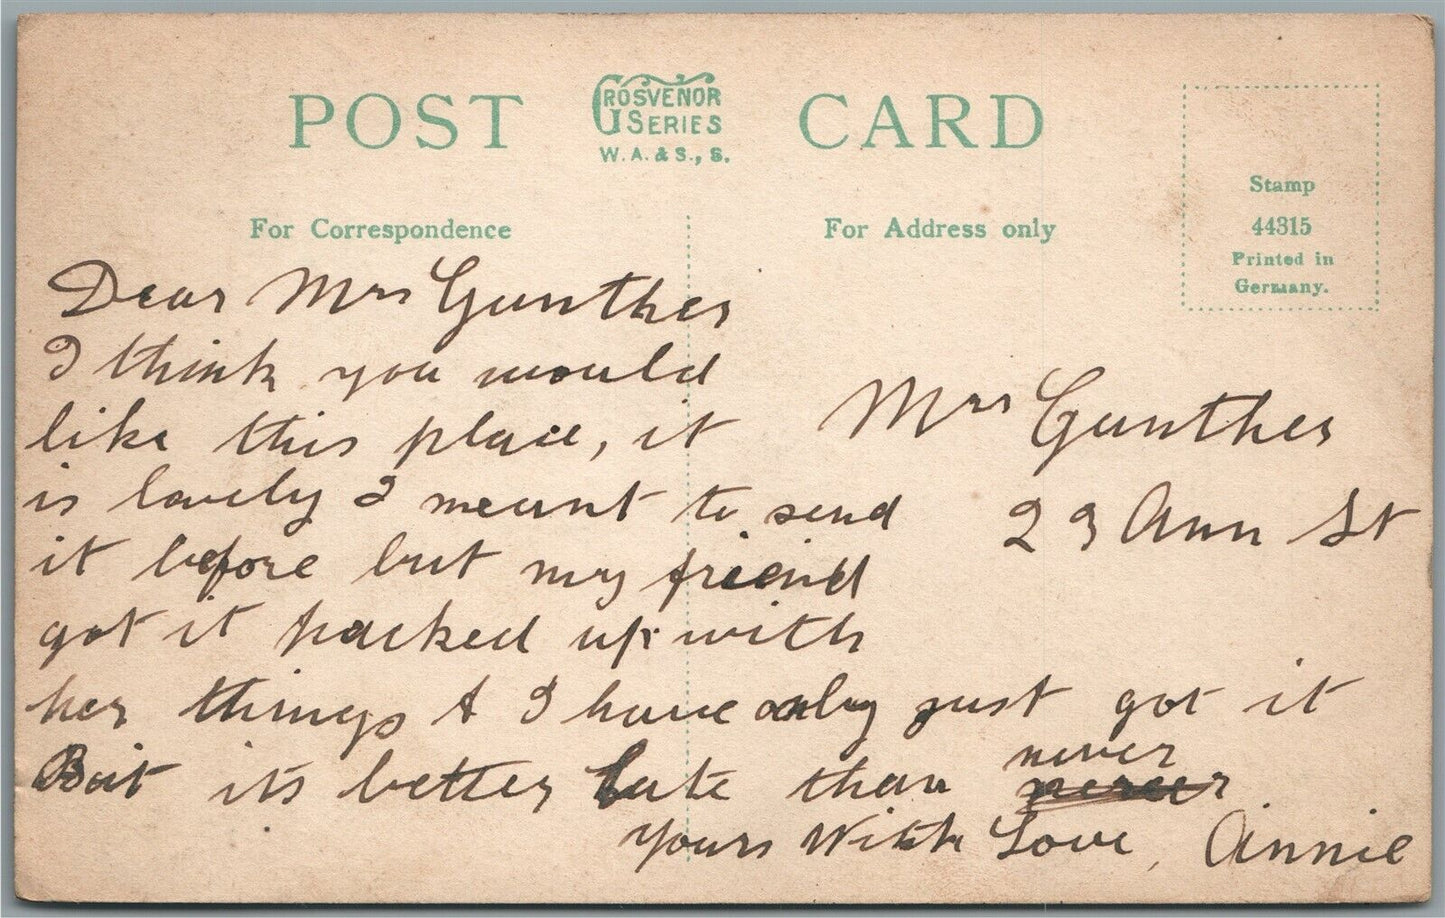 POST CARD
GROSVENOR
SERIES
W. A. & S., S.
Stamp
44315
Printed in
Germany.
For Correspondence
For Address only
Dear Mrs Gunther
I think you would
like this place, it
is lovely I meant to send
it before but my friend
got it packed up with
her things & I have only just got it
But its better late than never
yours With Love, Annie
Mrs Gunther
23 Ann St